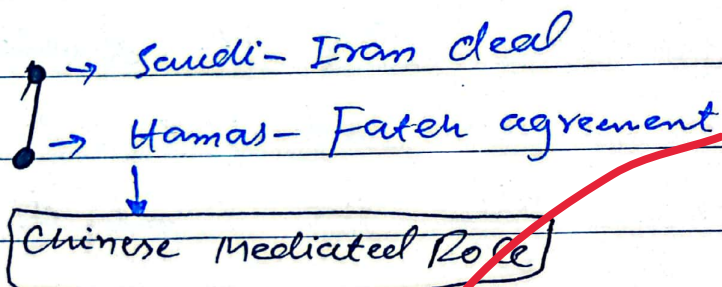 → Saudi- Iran deal
→ Hamas- Fateh agreement
Chinese Mediated Role